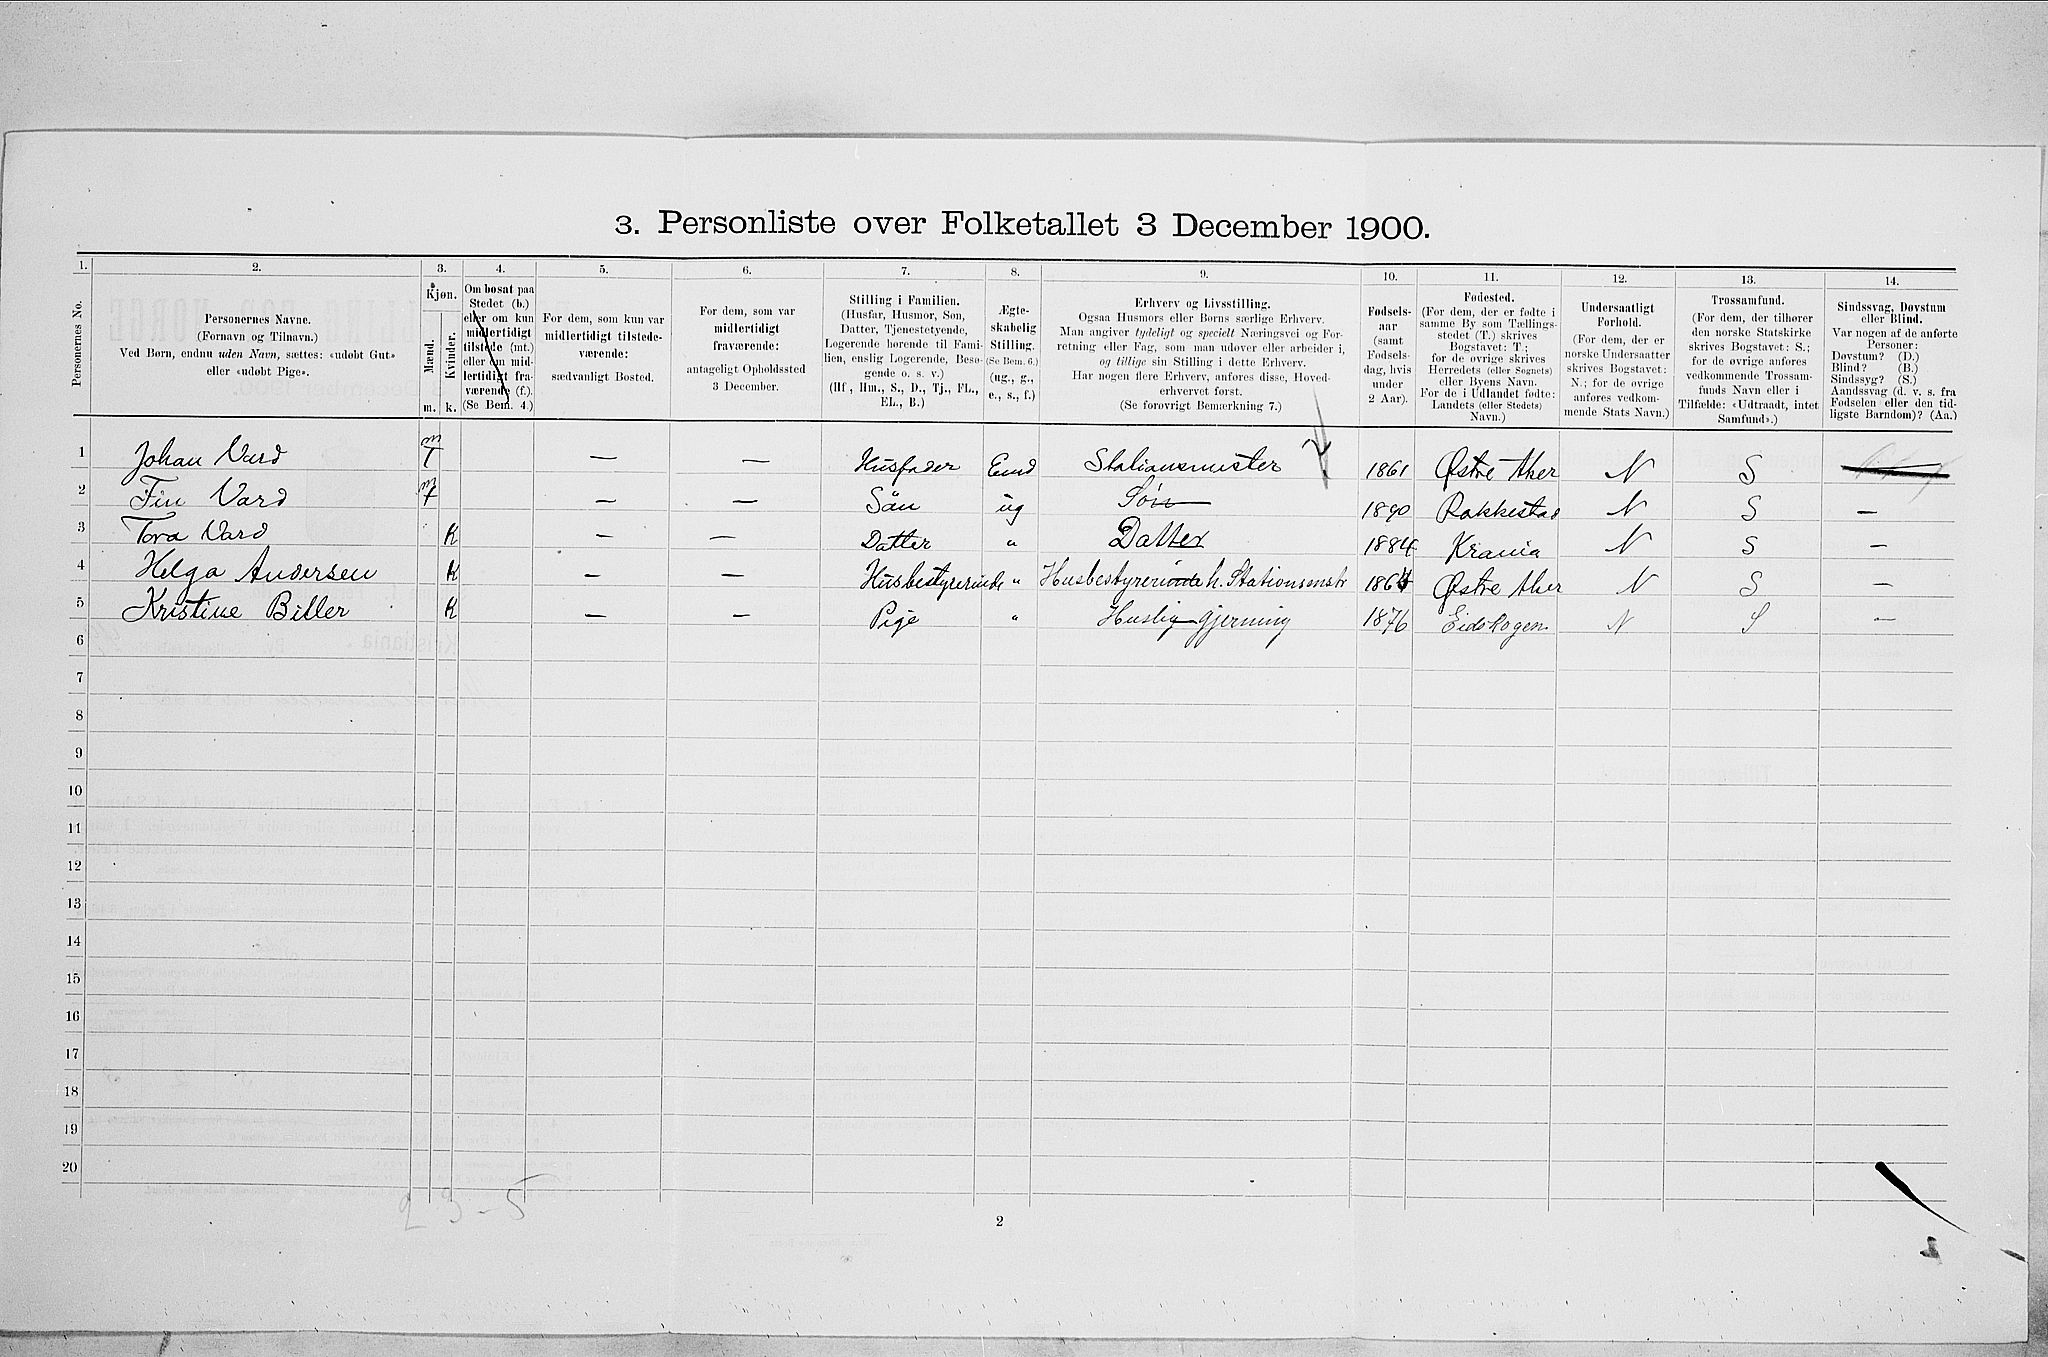 3. Personliste over Folketallet 3 December 1900.
1. 2. 3. 4. 5. 6. 7. 8. 9. 10. 11. 12. 13. 14.
Personernes No.
Personernes Navne.
(Fornavn og Tilnavn.)
Ved Børn, endnu uden Navn, sættes: «udøbt Gut»
eller «udøbt Pige».
Kjøn.
Mænd.
Kvinder.
m. k.
Om bosat paa
Stedet (b.)
eller om kun
midlertidigt
tilstede (mt.)
eller om mid-
lertidigt fra-
værende (f.)
(Se Bem. 4.)
For dem, som kun var
midlertidigt tilstede-
værende:
sædvanligt Bosted.
For dem, som var
midlertidigt
fraværende:
antageligt Opholdssted
3 December.
Stilling i Familien.
(Husfar, Husmor, Søn,
Datter, Tjenestetyende,
Logerende hørende til Fami-
lien, enslig Logerende, Besø-
gende o. s. v.)
(Hf, Hm., S., D., Tj., FL.,
EL., B.)
Ægte-
skabelig
Stilling.
(Se Bem. 6.)
(ug., g.,
e., s., f.)
Erhverv og Livsstilling.
Ogsaa Husmors eller Børns særlige Erhverv.
Man angiver tydeligt og specielt Næringsvei og For-
retning eller Fag, som man udøver eller arbeider i,
og tillige sin Stilling i dette Erhverv.
Har nogen flere Erhverv, anføres disse, Hoved-
erhvervet først.
(Se forøvrigt Bemærkning 7.)
Fødsels-
aar
(samt
Fødsels-
dag, hvis
under
2 Aar).
Fødested.
(For dem, der er fødte i
samme By som Tællings-
stedet (T.) skrives
Bogstavet: T.;
for de øvrige skrives
Herredets (eller Sognets)
eller Byens Navn.
For de i Udlandet fødte:
Landets (eller Stedets)
Navn.)
Undersaatligt
Forhold.
(For dem, der er
norske Undersaatter
skrives Bogstavet:
N.; for de øvrige
anføres vedkom-
mende Stats Navn.)
Trossamfund.
(For dem, der tilhører
den norske Statskirke
skrives Bogstavet: S.;
for de øvrige anføres
vedkommende Trossam-
funds Navn eller i
Tilfælde: «Udtraadt, intet
Samfund».)
Sindssvag, Døvstum
eller Blind.
Var nogen af de anførte
Personer:
Døvstum? (D.)
Blind? (B.)
Sindssyg? (S.)
Aandssvag (d. v. s. fra
Fødselen eller den tid-
ligste Barndom)? (Aa.)
1 Johan Vard m — — Husfader Emd Stationsmester 1861 Østre Aker N S
2 Fin Vard m — — Sön ug Søn 1890 Rakkestad N S —
3 Tora Vard K — — Datter " Datter 1884 Krania N S —
4 Helga Andersen K — — Husbestyrerinde " Husbestyrerinde h. Stationsmstr 1864 Østre Aker N S —
5 Kristine Biller K — — Pige " Huslig gjerning 1876 Eidskogen N S —
6
7
8
9
10
11
12
13
14
15
16
17
18
19
20
2 3 - 5
2